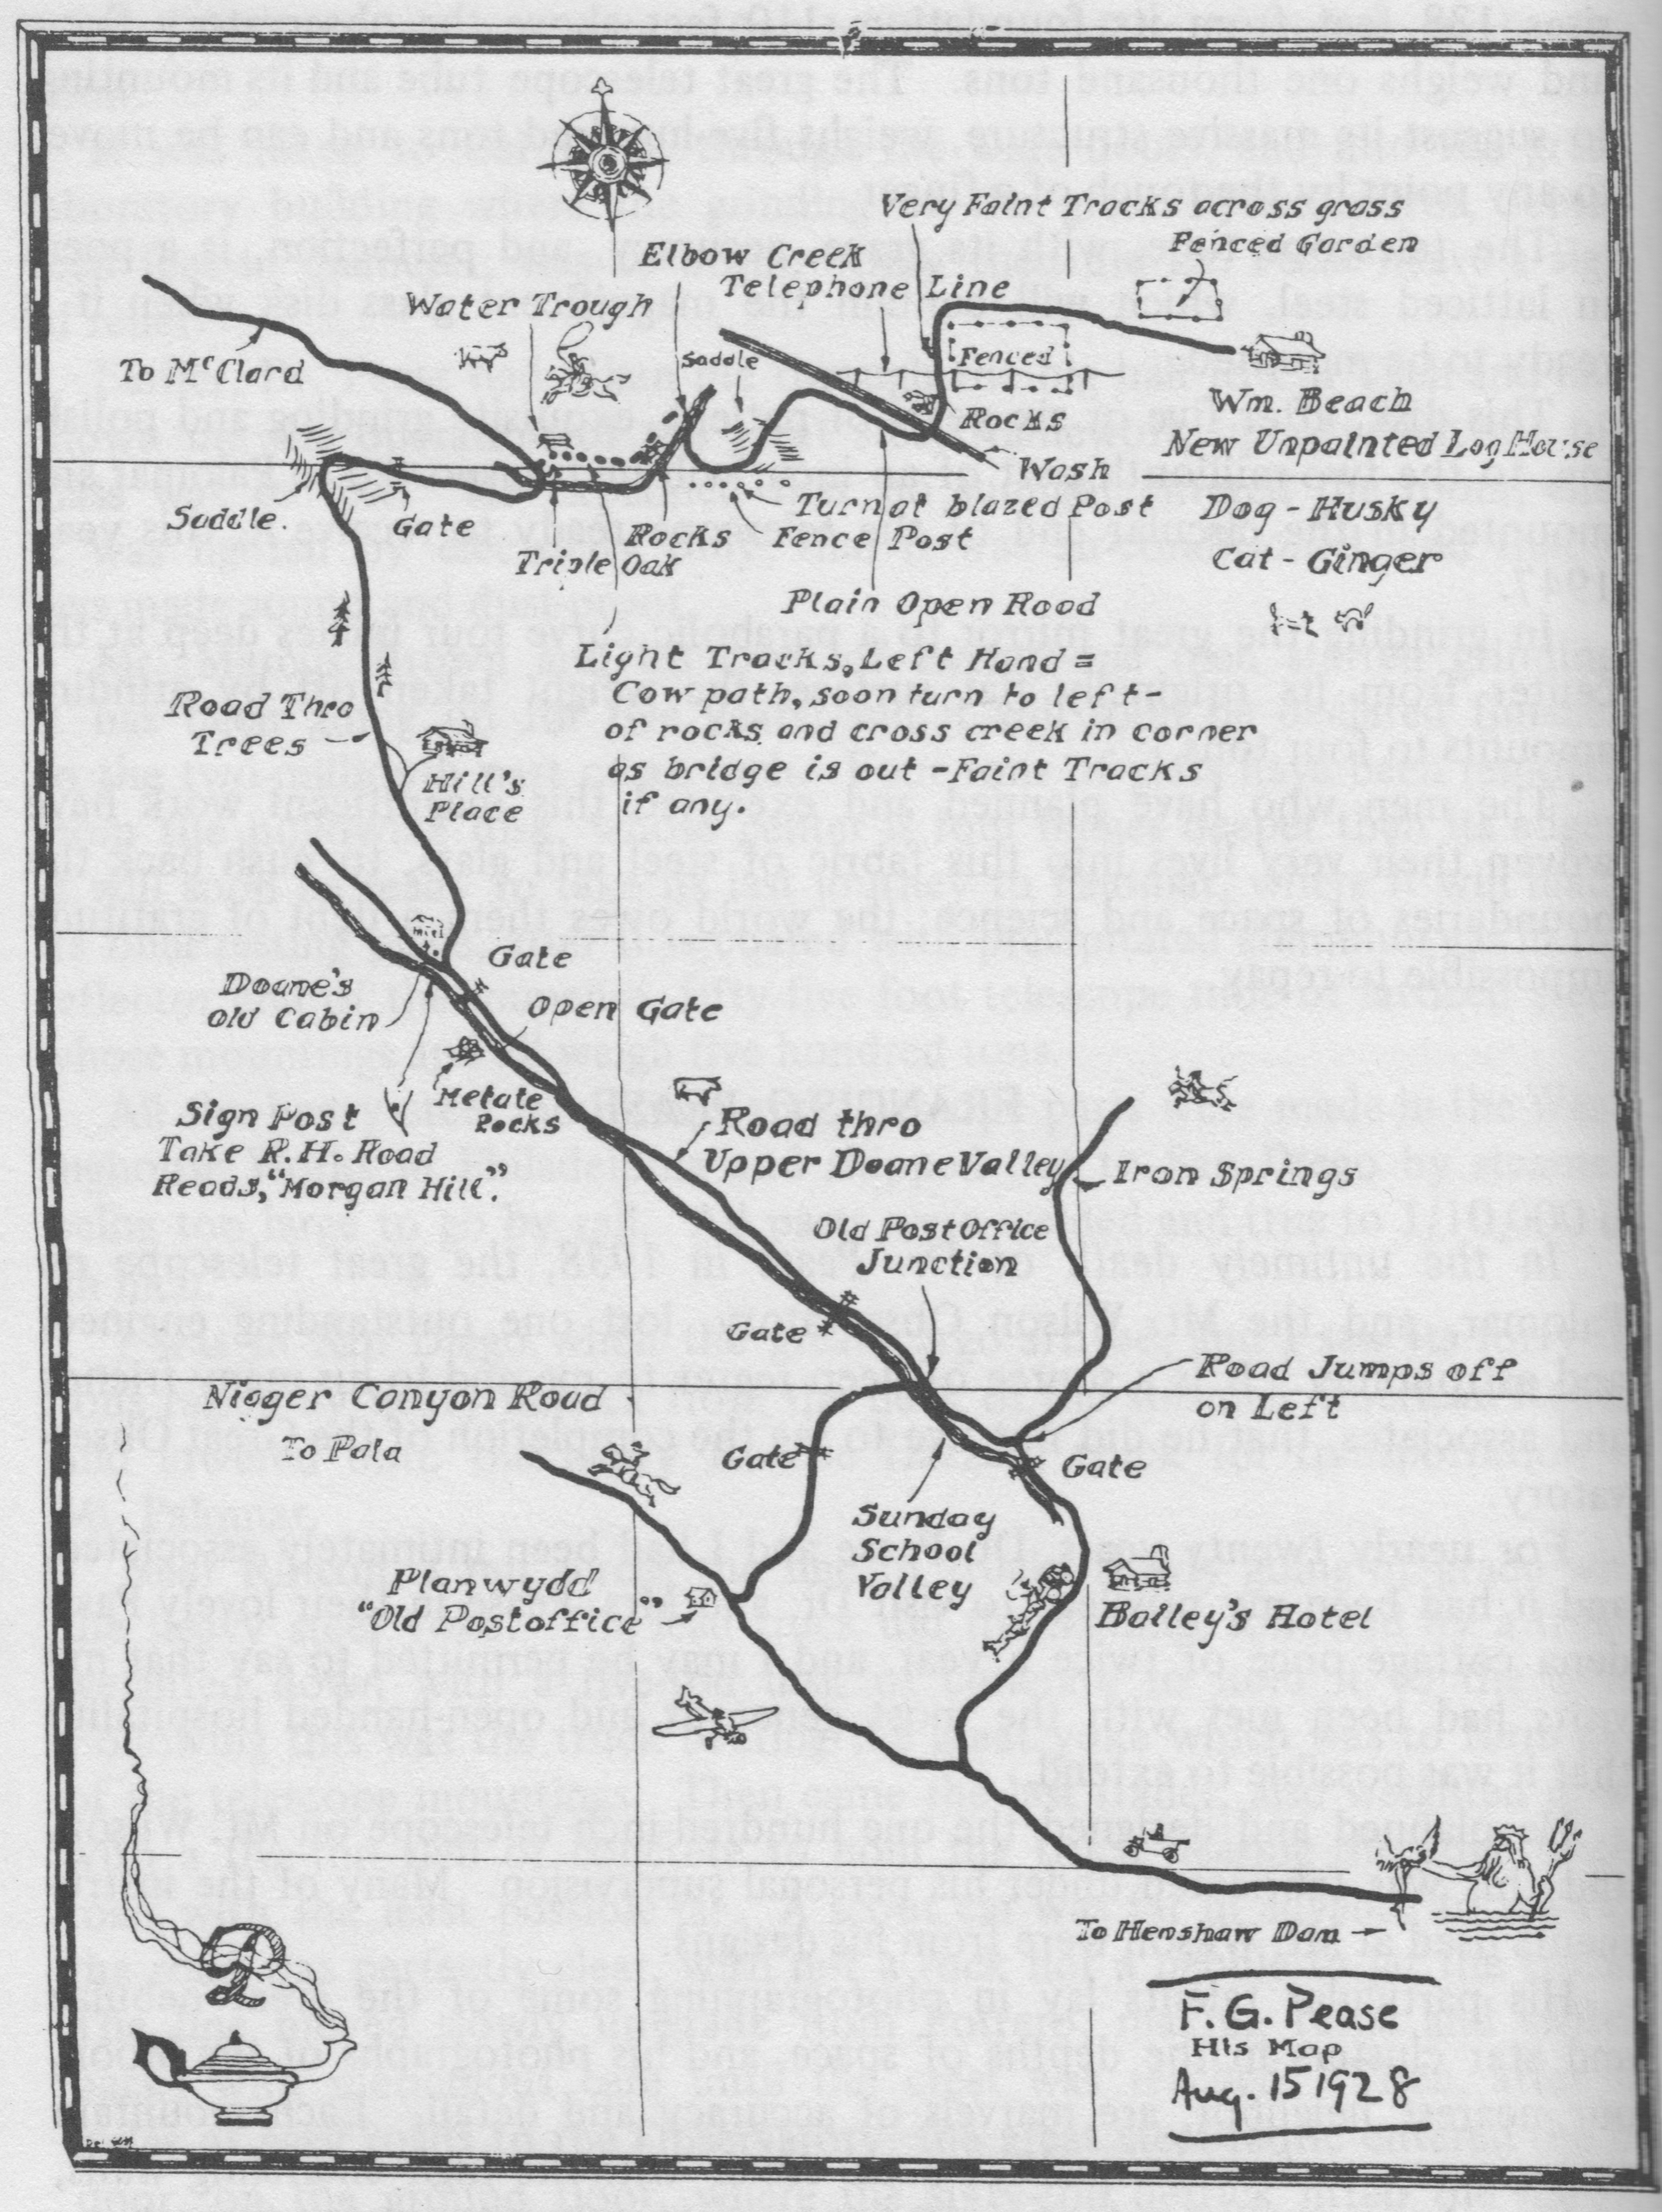 Very Faint Tracks across grass
Fenced Garden
Elbow Creek
Telephone Line
Water Trough
To McClard
Saddle
Fenced
Rocks
Wm. Beach
New Unpainted Log House
Wash
Saddle.
Gate
Turn at blazed Post
Dog - Husky
Rocks
Fence Post
Cat - Ginger
Triple Oak
Plain Open Road
Light Tracks, Left Hand =
Cow path, soon turn to left -
of rocks and cross creek in corner
as bridge is out - Faint Tracks
if any.
Road Thro
Trees
Hill's
Place
Gate
Doane's
Old Cabin
Open Gate
Metate
Rocks
Sign Post
Take R.H. Road
Reads, "Morgan Hill."
Road thro
Upper Doane Valley
Iron Springs
Old Post Office
Junction
Gate
Road Jumps off
on Left
Nigger Canyon Road
To Pala
Gate
Gate
Sunday
School
Valley
Planwydd
"Old Postoffice"
Bailey's Hotel
To Henshaw Dam
F. G. Pease
His Map
Aug. 15 1928